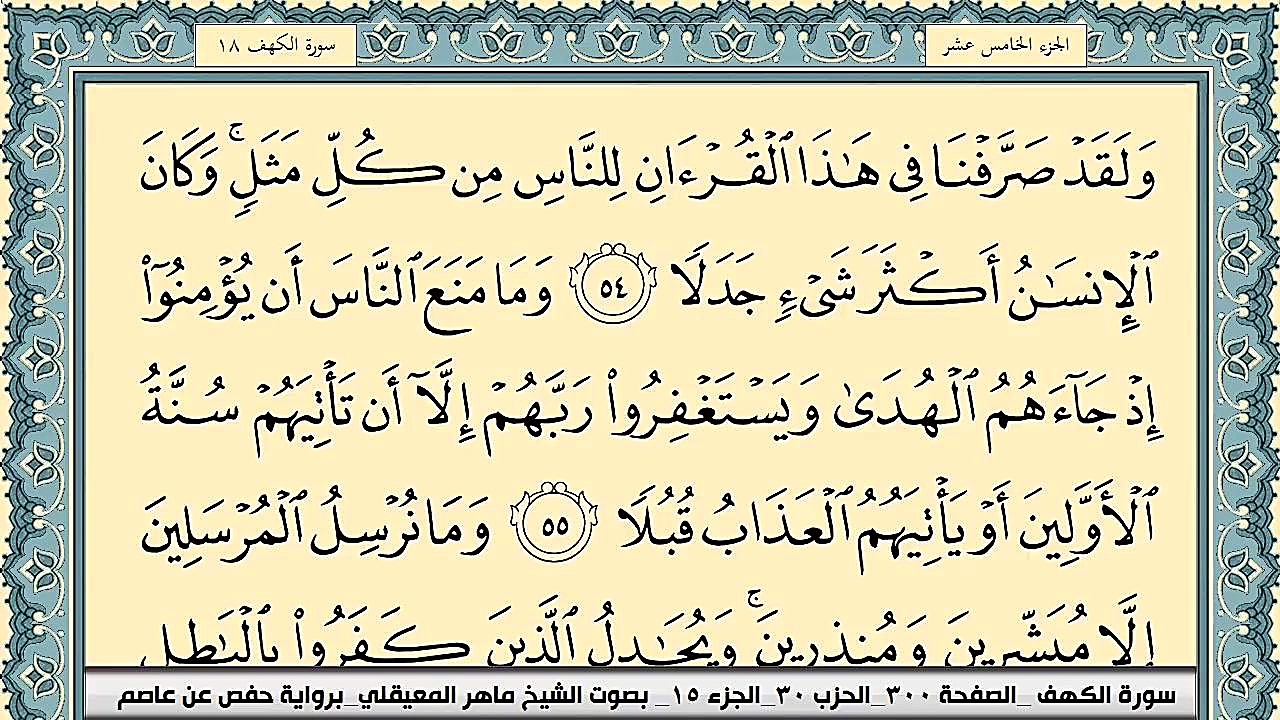 الجزء الخامس عشر
سورة الكهف ١٨
وَلَقَدۡ صَرَّفۡنَا فِي هَٰذَا ٱلۡقُرۡءَانِ لِلنَّاسِ مِن كُلِّ مَثَلٖۚ وَكَانَ
ٱلۡإِنسَٰنُ أَكۡثَرَ شَيۡءٖ جَدَلٗا ٥٤ وَمَا مَنَعَ ٱلنَّاسَ أَن يُؤۡمِنُوٓاْ
إِذۡ جَآءَهُمُ ٱلۡهُدَىٰ وَيَسۡتَغۡفِرُواْ رَبَّهُمۡ إِلَّآ أَن تَأۡتِيَهُمۡ سُنَّةُ
ٱلۡأَوَّلِينَ أَوۡ يَأۡتِيَهُمُ ٱلۡعَذَابُ قُبُلٗا ٥٥ وَمَا نُرۡسِلُ ٱلۡمُرۡسَلِينَ
إِلَّا مُبَشِّرِينَ وَمُنذِرِينَۚ وَيُجَٰدِلُ ٱلَّذِينَ كَفَرُواْ بِٱلۡبَٰطِلِ
سورة الكهف _الصفحة ٣٠٠_الحزب ٣٠_الجزء ١٥_ بصوت الشيخ ماهر المعيقلي_برواية حفص عن عاصم